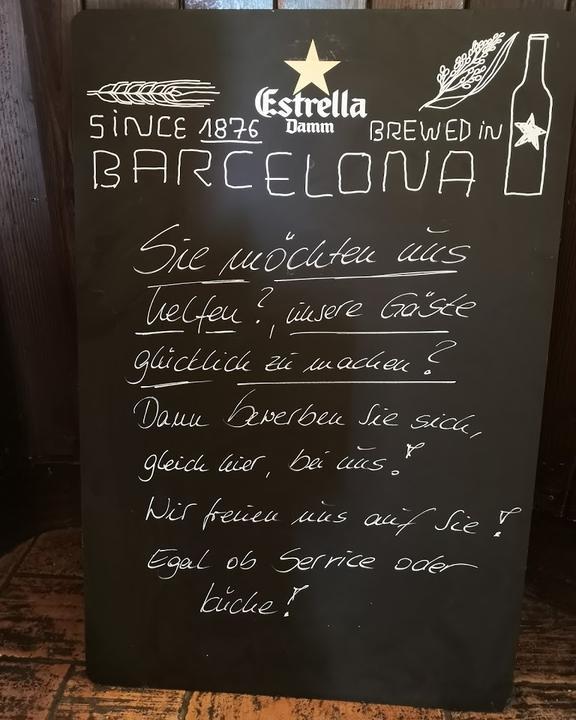 Estrella
Damm
SINCE 1876
BREWED IN
BARCELONA
Sie möchten uns
helfen?, unsere Gäste
glücklich zu machen?
Dann bewerben Sie sich,
gleich hier, bei uns!
Wir freuen uns auf Sie!
Egal ob Service oder
Küche!